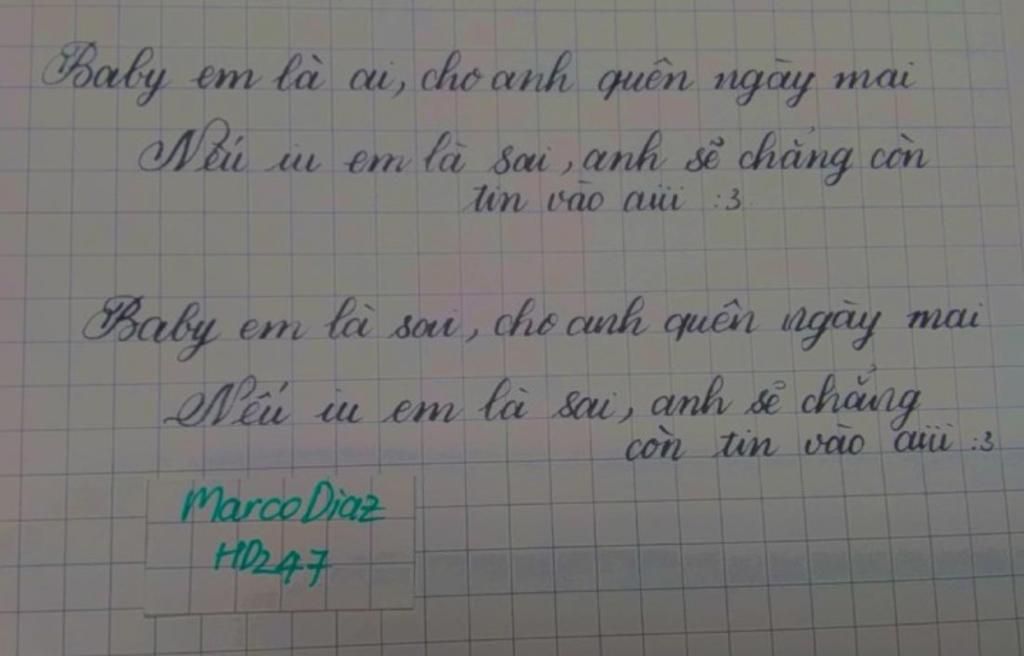 Baby em là ai, cho anh quên ngày mai
Nếu iu em là sai, anh sẽ chẳng còn
tin vào aiii :3
Baby em là sai, cho anh quên ngày mai
Nếu iu em là sai, anh sẽ chẳng
còn tin vào aiii :3
Marco Diaz
HD247